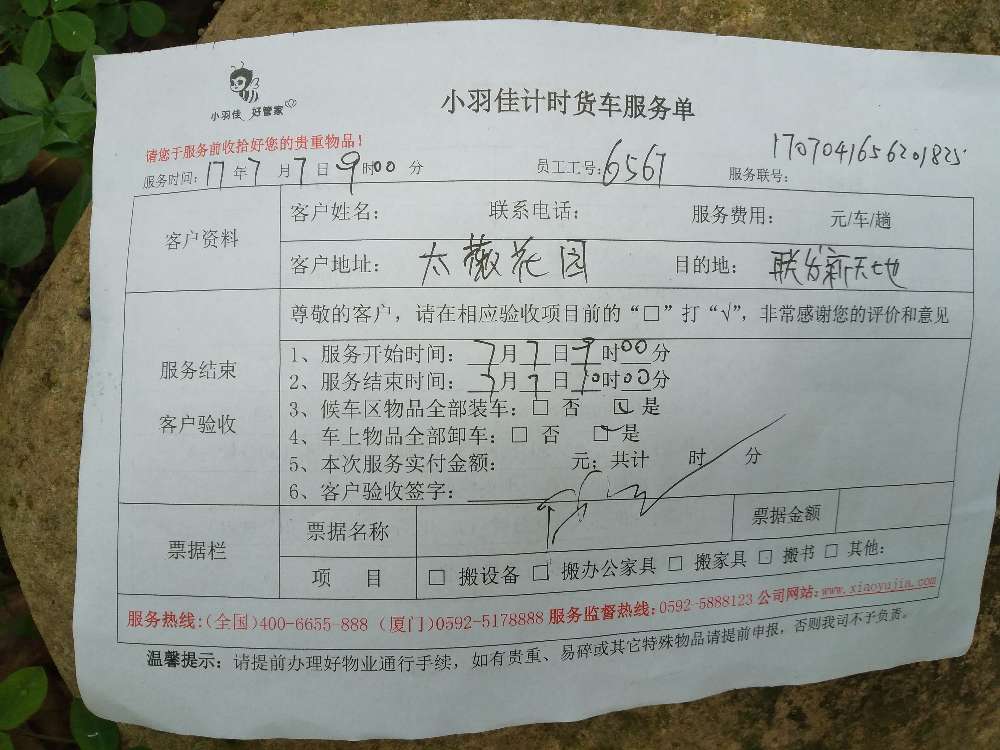 小羽佳 好管家
小羽佳计时货车服务单
请您于服务前收拾好您的贵重物品！
服务时间：17年7月7日9时00分 员工工号：6567 服务联号：1707041656201825
客户资料
客户姓名： 联系电话： 服务费用： 元/车/趟
客户地址：大薇花园 目的地：联发新天地
服务结束
客户验收
尊敬的客户，请在相应验收项目前的“□”打“√”，非常感谢您的评价和意见
1、服务开始时间：7月7日9时00分
2、服务结束时间：7月7日10时00分
3、候车区物品全部装车：□ 否 □ 是
4、车上物品全部卸车：□ 否 □ 是
5、本次服务实付金额： 元；共计 时 分
6、客户验收签字：
票据栏
票据名称 票据金额
项 目 □ 搬设备 □ 搬办公家具 □ 搬家具 □ 搬书 □ 其他：
服务热线：（全国）400-6655-888（厦门）0592-5178888 服务监督热线：0592-5888123 公司网站：www.xiaoyujia.com
温馨提示：请提前办理好物业通行手续，如有贵重、易碎或其它特殊物品请提前申报，否则我司不予负责。